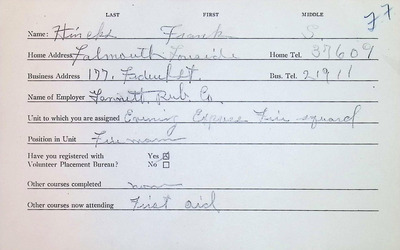 LAST FIRST MIDDLE
77
Name: Hincks Frank S.
Home Address Falmouth Foreside Home Tel. 37609
Business Address 177 Federal St. Bus. Tel. 21911
Name of Employer Gannett Pub. Co.
Unit to which you are assigned Evening Express Fire squard
Position in Unit Fireman
Have you registered with Yes ☒
Volunteer Placement Bureau? No ☐
Other courses completed none
Other courses now attending First aid